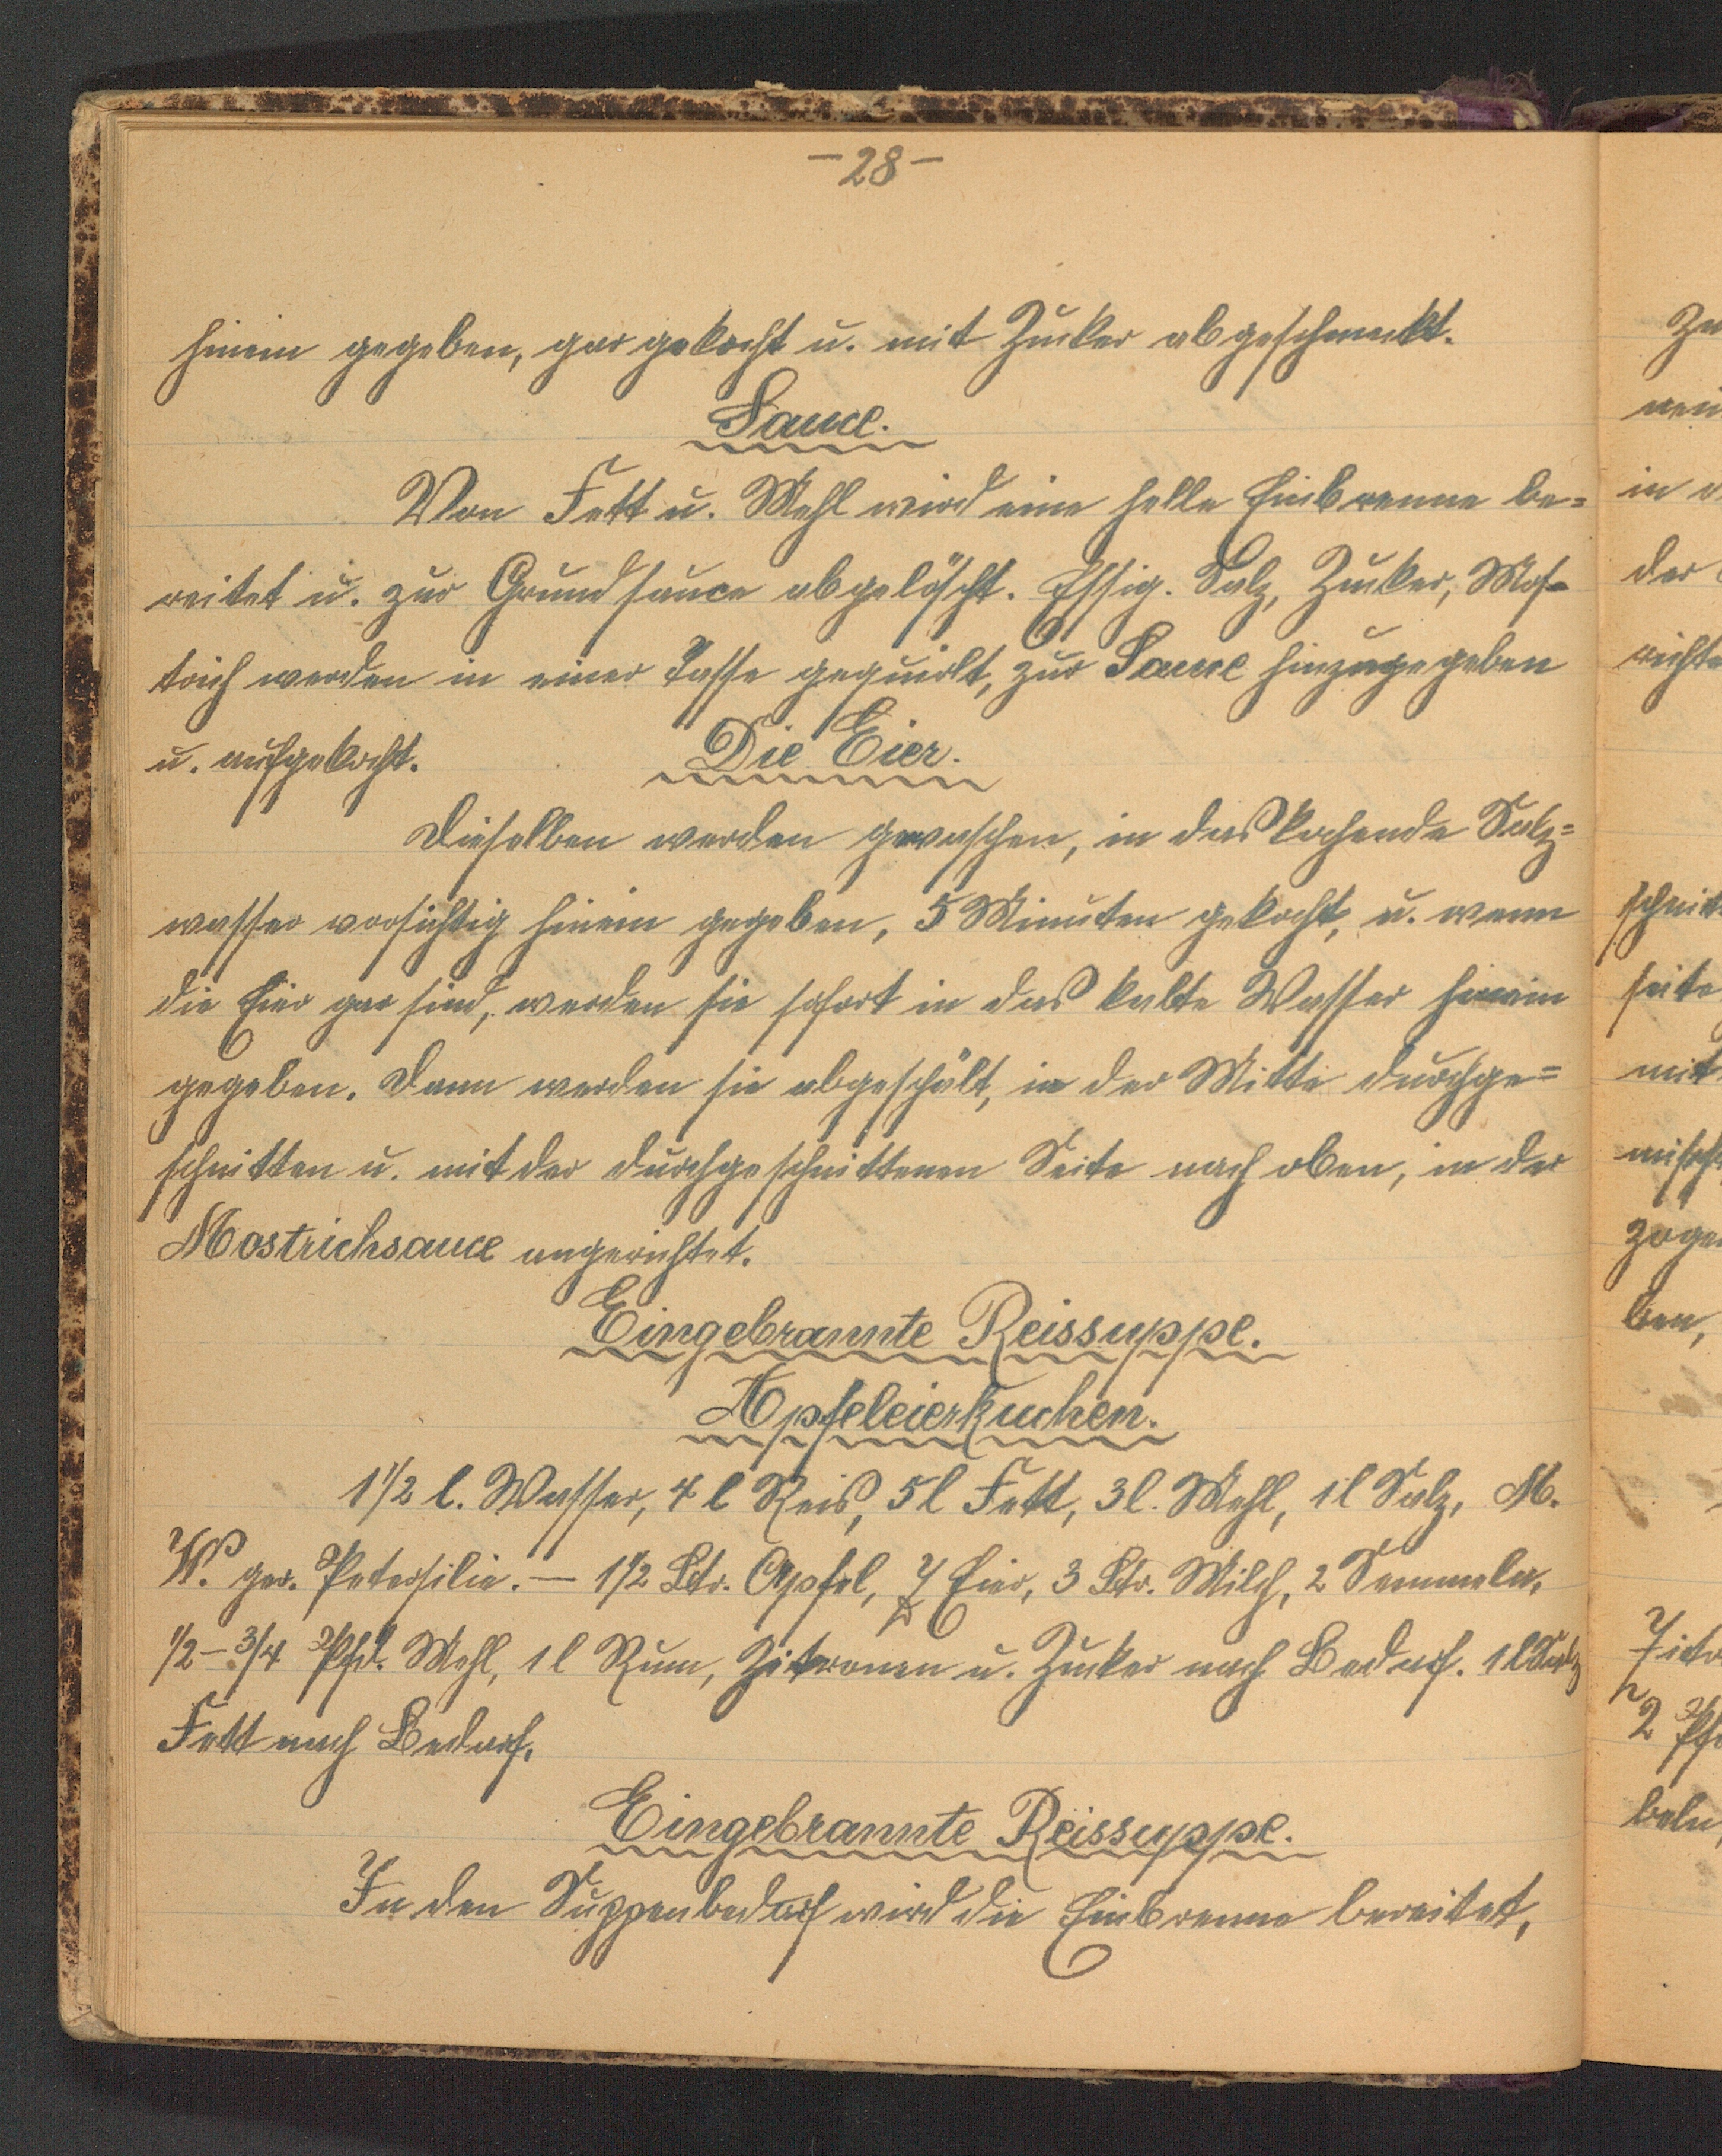 -28-
hinein gegeben, gar gekocht u. mit Zucker abgeschmeckt.
Sauce.
Von Fett u. Mehl wird eine helle Einbrenne be=
reitet u. zur Grundsauce abgelöscht. Essig. Salz, Zucker, Mos-
trich werden in einer Tasse gequirlt, zur Sauce hinzugegeben
u. aufgekocht.
Die Eier.
Dieselben werden gewaschen, in das kochende Salz=
wasser vorsichtig hinein gegeben, 5 Minuten gekocht, u. wenn
die Eier gar sind, werden sie sofort in das kalte Wasser hinein
gegeben. Dann werden sie abgeschält, in der Mitte durchge=
schnitten u. mit der durchgeschnittenen Seite nach oben, in der
Mostrichsauce angerichtet.
Eingebrannte Reissuppe.
Apfeleierkuchen.
1 1/2 l. Wasser, 4 l Reis, 5 l Fett, 3 l. Mehl, 1 l Salz, M.
W. ger. Petersilie. — 1 1/2 Ltr. Apfel, Eier, 3 Ltr. Milch, 2 Semmeln,
1/2 - 3/4 Pfd. Mehl, 1 l Rum, Zitronen u. Zucker nach Bedarf. 1 l Salz
Fett nach Bedarf.
Eingebrannte Reissuppe.
In den Suppenbedarf wird die Einbrenne bereitet,